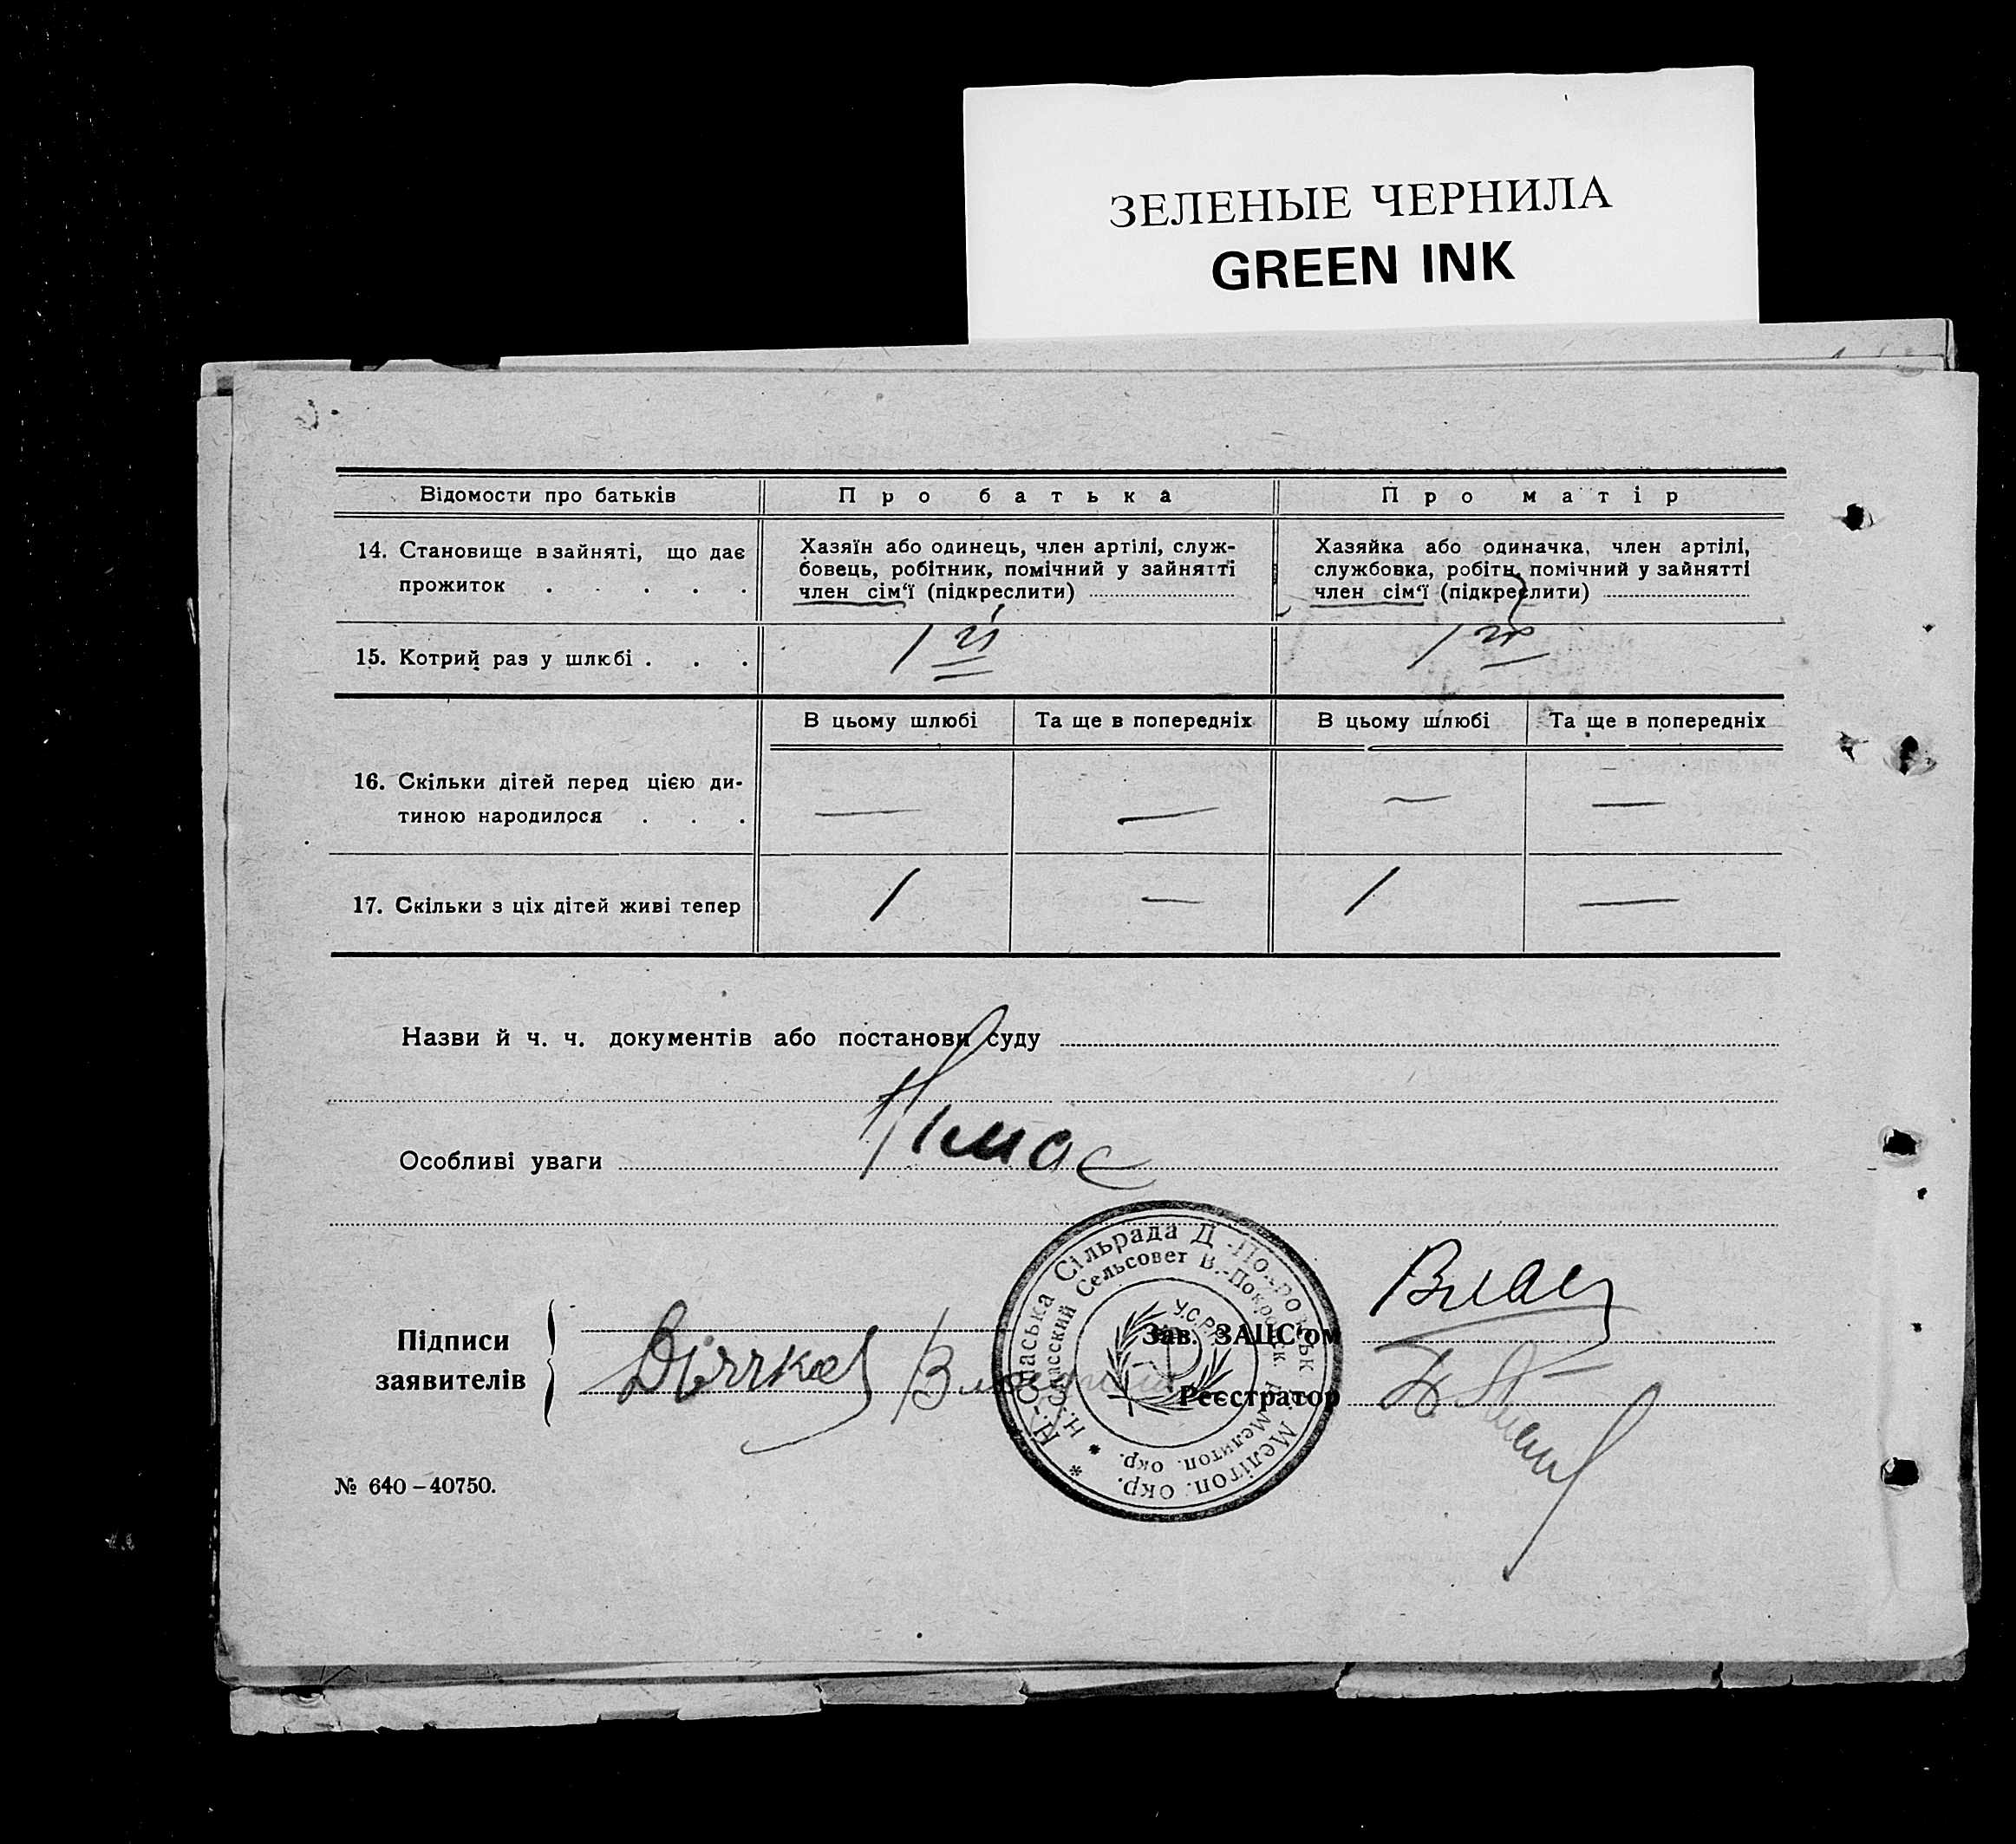 ЗЕЛЕНЫЕ ЧЕРНИЛА
GREEN INK
Відомости про батьків
Про батька
Про матір
14. Становище в зайняті, що дає
прожиток . . . . .
Хазяїн або одинець, член артілі, служ-
бовець, робітник, помічний у зайнятті
член сім‘ї (підкреслити)
Хазяйка або одиначка, член артілі,
службовка, робітн. помічний у зайнятті
член сім‘ї (підкреслити)
15. Котрий раз у шлюбі . . .
1 й
1 й
В цьому шлюбі
Та ще в попередніх
В цьому шлюбі
Та ще в попередніх
16. Скільки дітей перед цією ди-
тиною народилося . . .
— — — —
17. Скільки з ціх дітей живі тепер
1 — 1 —
Назви й ч. ч. документів або постанови суду
Німає
Особливі уваги
Н.-Спаська Сільрада В.-Покровськ. Мелітоп. окр.
Н.-Спасский Сельсовет В.-Покровск. Мелитоп. окр.
У.С.Р.Р.
Підписи
заявителів
Зав. ЗАЦС‘ом
Реєстратор
№ 640 – 40750.